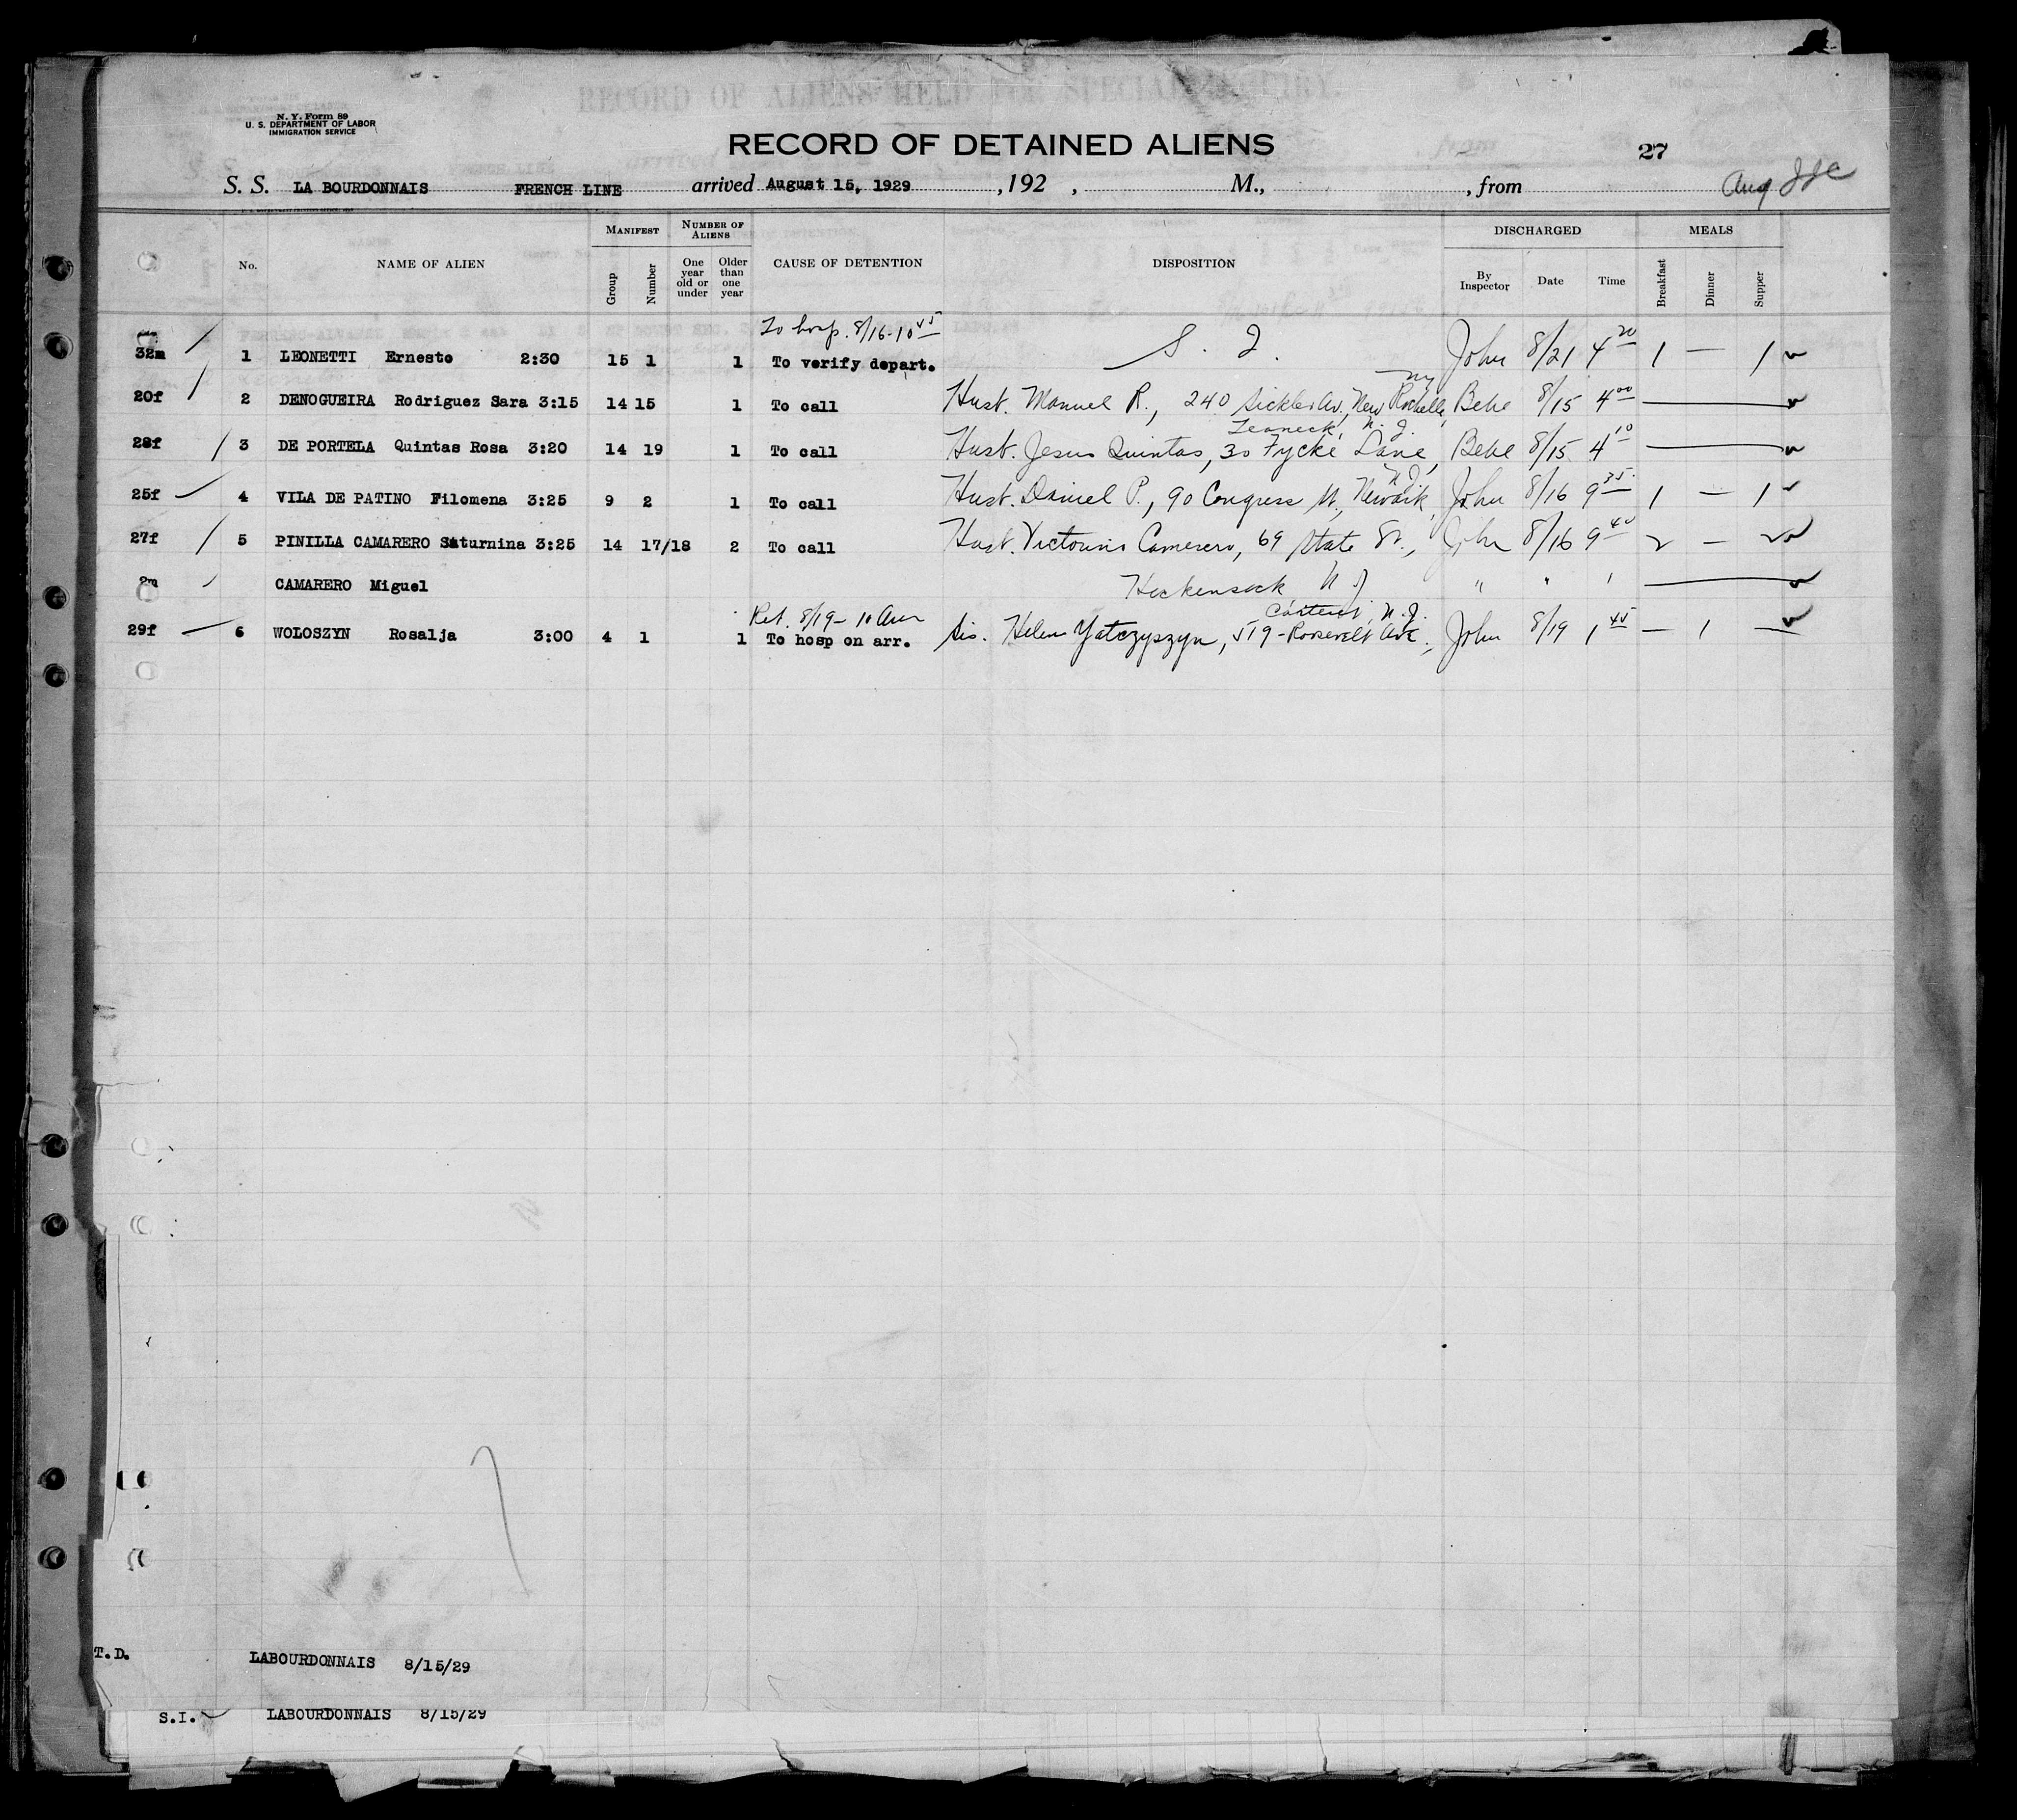 RECORD OF ALIENS HELD FOR SPECIAL INQUIRY.
N. Y. Form 89
U. S. DEPARTMENT OF LABOR
IMMIGRATION SERVICE
RECORD OF DETAINED ALIENS
27
S. S. LA BOURDONNAIS FRENCH LINE arrived August 15, 1929 , 192 , M., , from Aug
No. NAME OF ALIEN MANIFEST Group Number NUMBER OF ALIENS One year old or under Older than one year CAUSE OF DETENTION DISPOSITION DISCHARGED By Inspector Date Time MEALS Breakfast Dinner Supper
To hosp. 8/16-10 45
32m 1 LEONETTI Ernesto 2:30 15 1 1 To verify depart. S. I. John 8/21 4 20 1 — 1
NY
20f 2 DENOGUEIRA Rodriguez Sara 3:15 14 15 1 To call Husb. Manuel R., 240 Sickles Av., New Rochelle, Behe 8/15 4 00
Teaneck, N. J.
28f 3 DE PORTELA Quintas Rosa 3:20 14 19 1 To call Husb. Jesus Quintas, 30 Fycke Lane, Behe 8/15 4 10
N.J.
25f 4 VILA DE PATINO Filomena 3:25 9 2 1 To call Husb. Daniel P., 90 Congress St., Newark, John 8/16 9 35 1 — 1
27f 5 PINILLA CAMARERO Saturnina 3:25 14 17/18 2 To call Husb. Victorino Camerero, 69 State St., John 8/16 9 40 2 — 2
2m CAMARERO Miguel Hackensack N J " " "
Ret. 8/19 - 10 Am Carteret, N.J.
29f 6 WOLOSZYN Rosalja 3:00 4 1 1 To hosp on arr. Sis. Helen Yatczyszyn, 519 - Roosevelt Ave., John 8/19 1 45 — 1 —
T.D. LABOURDONNAIS 8/15/29
S.I. LABOURDONNAIS 8/15/29